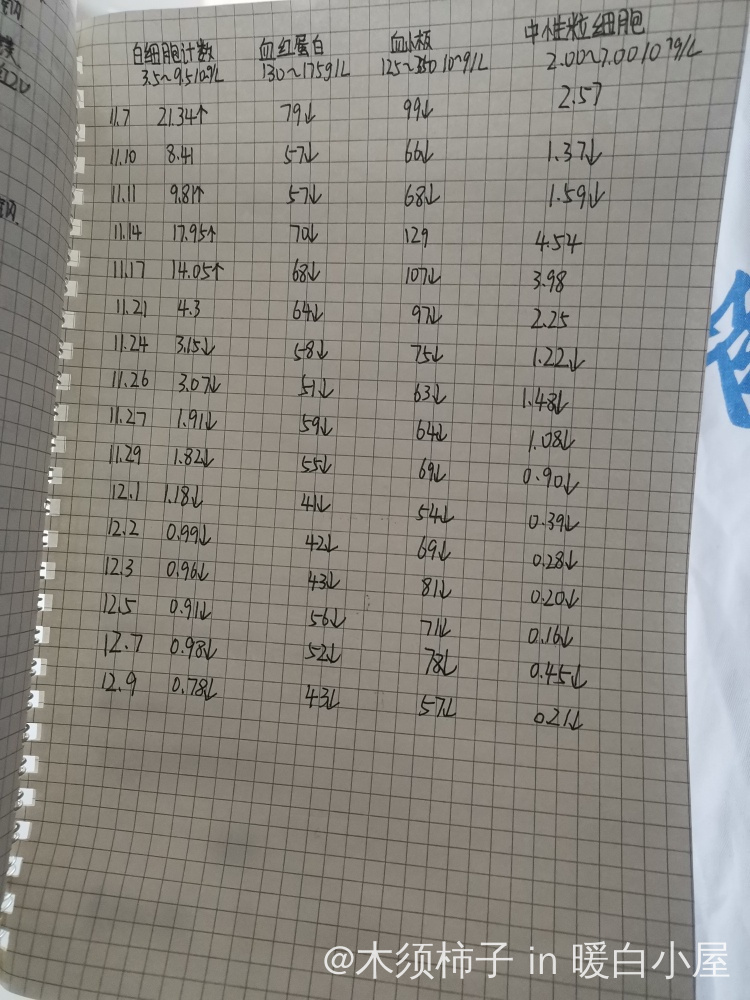 白细胞计数 血红蛋白 血小板 中性粒细胞
3.5~9.5 10^9/L 130~175g/L 125~350 10^9/L 2.00~7.00 10^9/L
11.7 21.34↑ 79↓ 99↓ 2.57
11.10 8.41 57↓ 66↓ 1.37↓
11.11 9.81↑ 57↓ 68↓ 1.59↓
11.14 17.95↑ 70↓ 129 4.54
11.17 14.05↑ 68↓ 107↓ 3.98
11.21 4.3 64↓ 97↓ 2.25
11.24 3.15↓ 58↓ 75↓ 1.22↓
11.26 3.07↓ 51↓ 63↓ 1.48↓
11.27 1.91↓ 59↓ 64↓ 1.08↓
11.29 1.82↓ 55↓ 69↓ 0.90↓
12.1 1.18↓ 41↓ 54↓ 0.39↓
12.2 0.99↓ 42↓ 69↓ 0.28↓
12.3 0.96↓ 43↓ 81↓ 0.20↓
12.5 0.91↓ 56↓ 71↓ 0.16↓
12.7 0.98↓ 52↓ 78↓ 0.45↓
12.9 0.78↓ 43↓ 57↓ 0.21↓
@木须柿子 in 暖白小屋